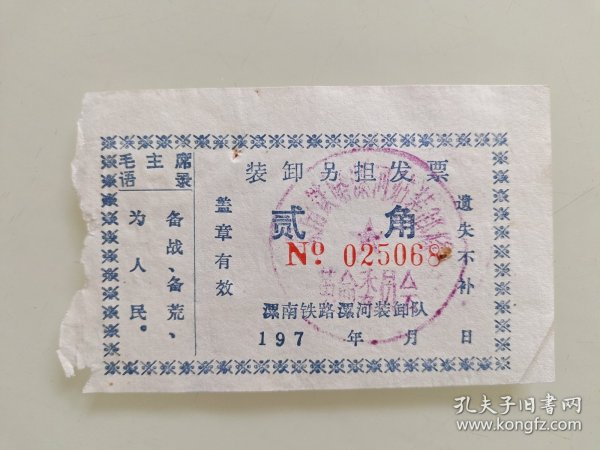 毛主席
语录
备战、备荒、
为人民。
装卸另担发票
盖章有效
贰角
遗失不补
No 025068
漯南铁路漯河装卸队
197 年 月 日
革命委员会
孔夫子旧书网
www.kongfz.com